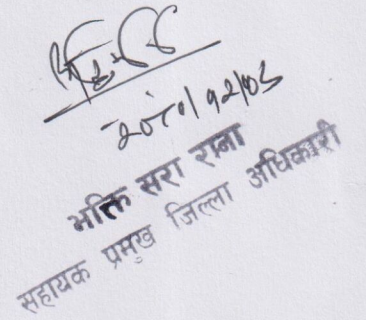 २०८०/१२/०३
भक्ति सरा राना
सहायक प्रमुख जिल्ला अधिकारी